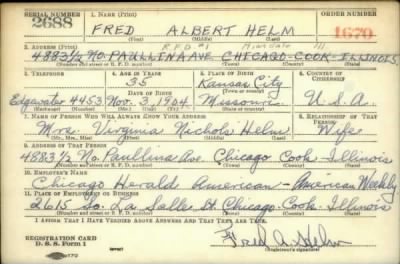 SERIAL NUMBER 1. NAME (Print) ORDER NUMBER
2688 FRED ALBERT HELM 1670
(First) (Middle) (Last)
2. ADDRESS (Print) R.F.D. #1 Ill
4883 1/2 No. PAULLINA AVE CHICAGO-COOK-ILLINOIS
(Number and street or R. F. D. number) (Town) (County) (State)
3. TELEPHONE 4. AGE IN YEARS 5. PLACE OF BIRTH 6. COUNTRY OF CITIZENSHIP
35 Kansas City
DATE OF BIRTH (Town or county)
Edgewater 4453 Nov. 3, 1904 Missouri U.S.A.
(Exchange) (Number) (Mo.) (Day) (Yr.) (State or country)
7. NAME OF PERSON WHO WILL ALWAYS KNOW YOUR ADDRESS 8. RELATIONSHIP OF THAT PERSON
Mrs. Virginia Nichols Helm Wife
(Mr., Mrs., Miss) (First) (Middle) (Last)
9. ADDRESS OF THAT PERSON
4883 1/2 No. Paullina Ave. Chicago Cook Illinois
(Number and street or R. F. D. number) (Town) (County) (State)
10. EMPLOYER'S NAME
Chicago Herald American - American Weekly
11. PLACE OF EMPLOYMENT OR BUSINESS
2615 So. La Salle St. Chicago Cook Illinois
(Number and street or R. F. D. number) (Town) (County) (State)
I AFFIRM THAT I HAVE VERIFIED ABOVE ANSWERS AND THAT THEY ARE TRUE.
REGISTRATION CARD
D. S. S. Form 1 Fred A Helm
(Registrant's signature)